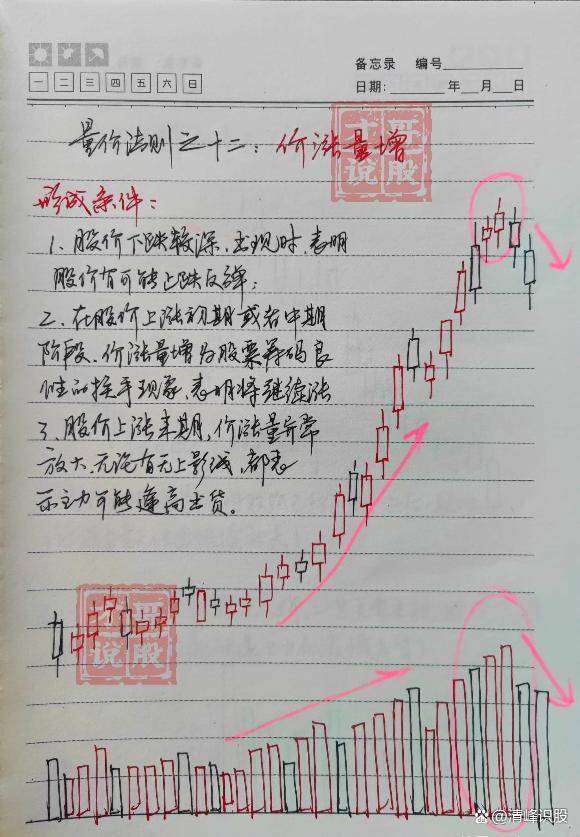 备忘录 编号
一 二 三 四 五 六 日
日期: 年 月 日
量价法则之十二：价涨量增
形成条件：
1、股价下跌较深，出现时，表明
股价有可能上跌反弹；
2、在股价上涨初期或者中期
阶段、价涨量增为股票筹码良
性的换手现象，表明将继续涨
3、股价上涨末期，价涨量异常
放大，无论有无上影线，都表
示主力可能逢高出货。
说股
说股
@清峰识股